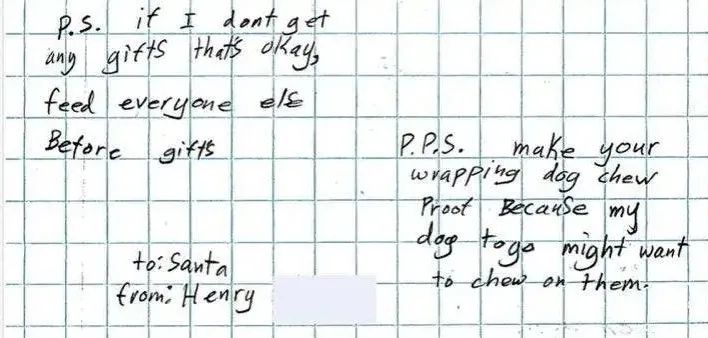 P.S. if I dont get
any gifts that's okay,
feed everyone else
Before gifts
P.P.S. make your
wrapping dog chew
Proof Because my
dog togo might want
to chew on them.
to: Santa
from: Henry